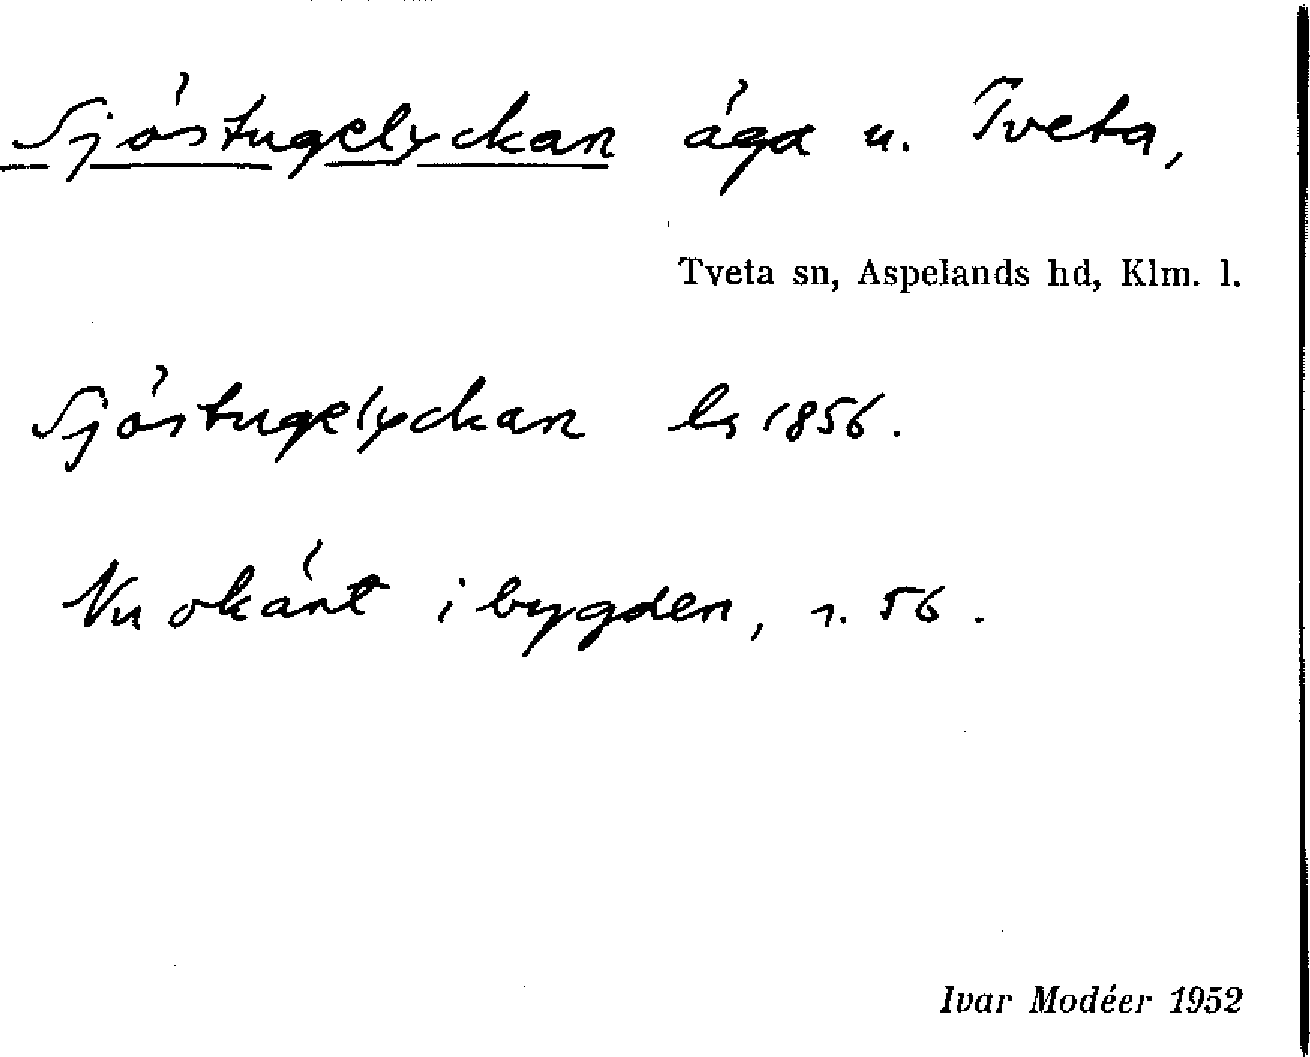 Sjöstugelyckan äga u. Tveta,
Tveta sn, Aspelands hd, Klm. l.
Sjöstugelyckan ls 1856.
Nu okänt i bygden, s. 56.
Ivar Modéer 1952